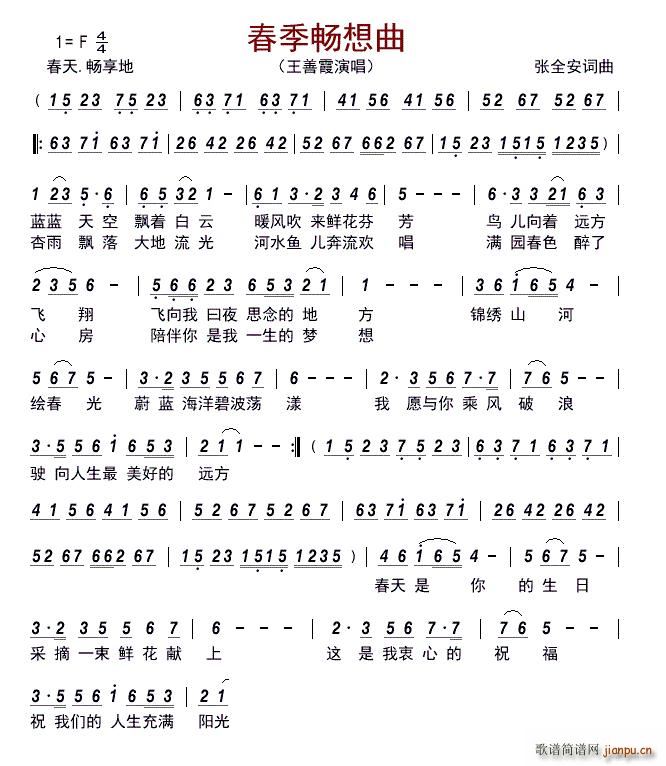 春季畅想曲
1= F 4/4
春天.畅享地 （王善霞演唱） 张全安词曲
( 15 23 75 23 | 63 71 63 71 | 41 56 41 56 | 52 67 52 67 |
‖: 63 71 63 71 | 26 42 26 42 | 52 67 662 67 | 15 23 1515 1235 )
1 23 5·6 | 65 32 2 - | 61 3·2 34 6 | 5 - - - | 6·3 3 21 63 |
蓝蓝 天空 飘着 白云 暖风吹 来鲜花芬 芳 鸟 儿向着 远方
杏雨 飘落 大地 流光 河水鱼 儿奔流欢 唱 满 园春色 醉了
2 35 6 - | 566 23 653 21 | 1 - - - | 36 165 4 - |
飞 翔 飞向我 日夜 思念的 地 方 锦绣 山 河
心 房 陪伴你 是我 一生的 梦 想
5 67 5 - | 3·2 35 5 52 | 6 - - - | 2·3 56 7·7 | 76 5 - - |
绘春 光 蔚 蓝 海洋碧波荡 漾 我 愿与你 乘风 破 浪
3·5 56 16 53 | 21 1 - - :‖ ( 15 23 75 23 | 63 71 63 71 |
驶 向人生最 美好的 远方
41 56 41 56 | 52 67 52 67 | 63 71 63 71 | 26 42 26 42 |
52 67 662 67 | 15 23 1515 1235 ) | 46 165 4 - | 5 67 5 - |
春天 是 你 的 生 日
3·2 35 56 7 | 6 - - - | 2·3 56 7·7 | 76 5 - - |
采 摘 一束 鲜 花 献 上 这 是 我衷 心的 祝 福
3·5 56 16 553 | 21 1 - -
祝 我们的 人生充满 阳光
歌谱简谱网
jianpu.cn